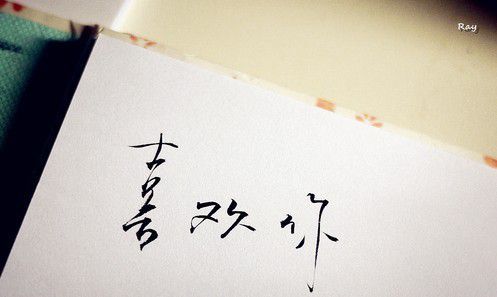 Ray
喜欢你